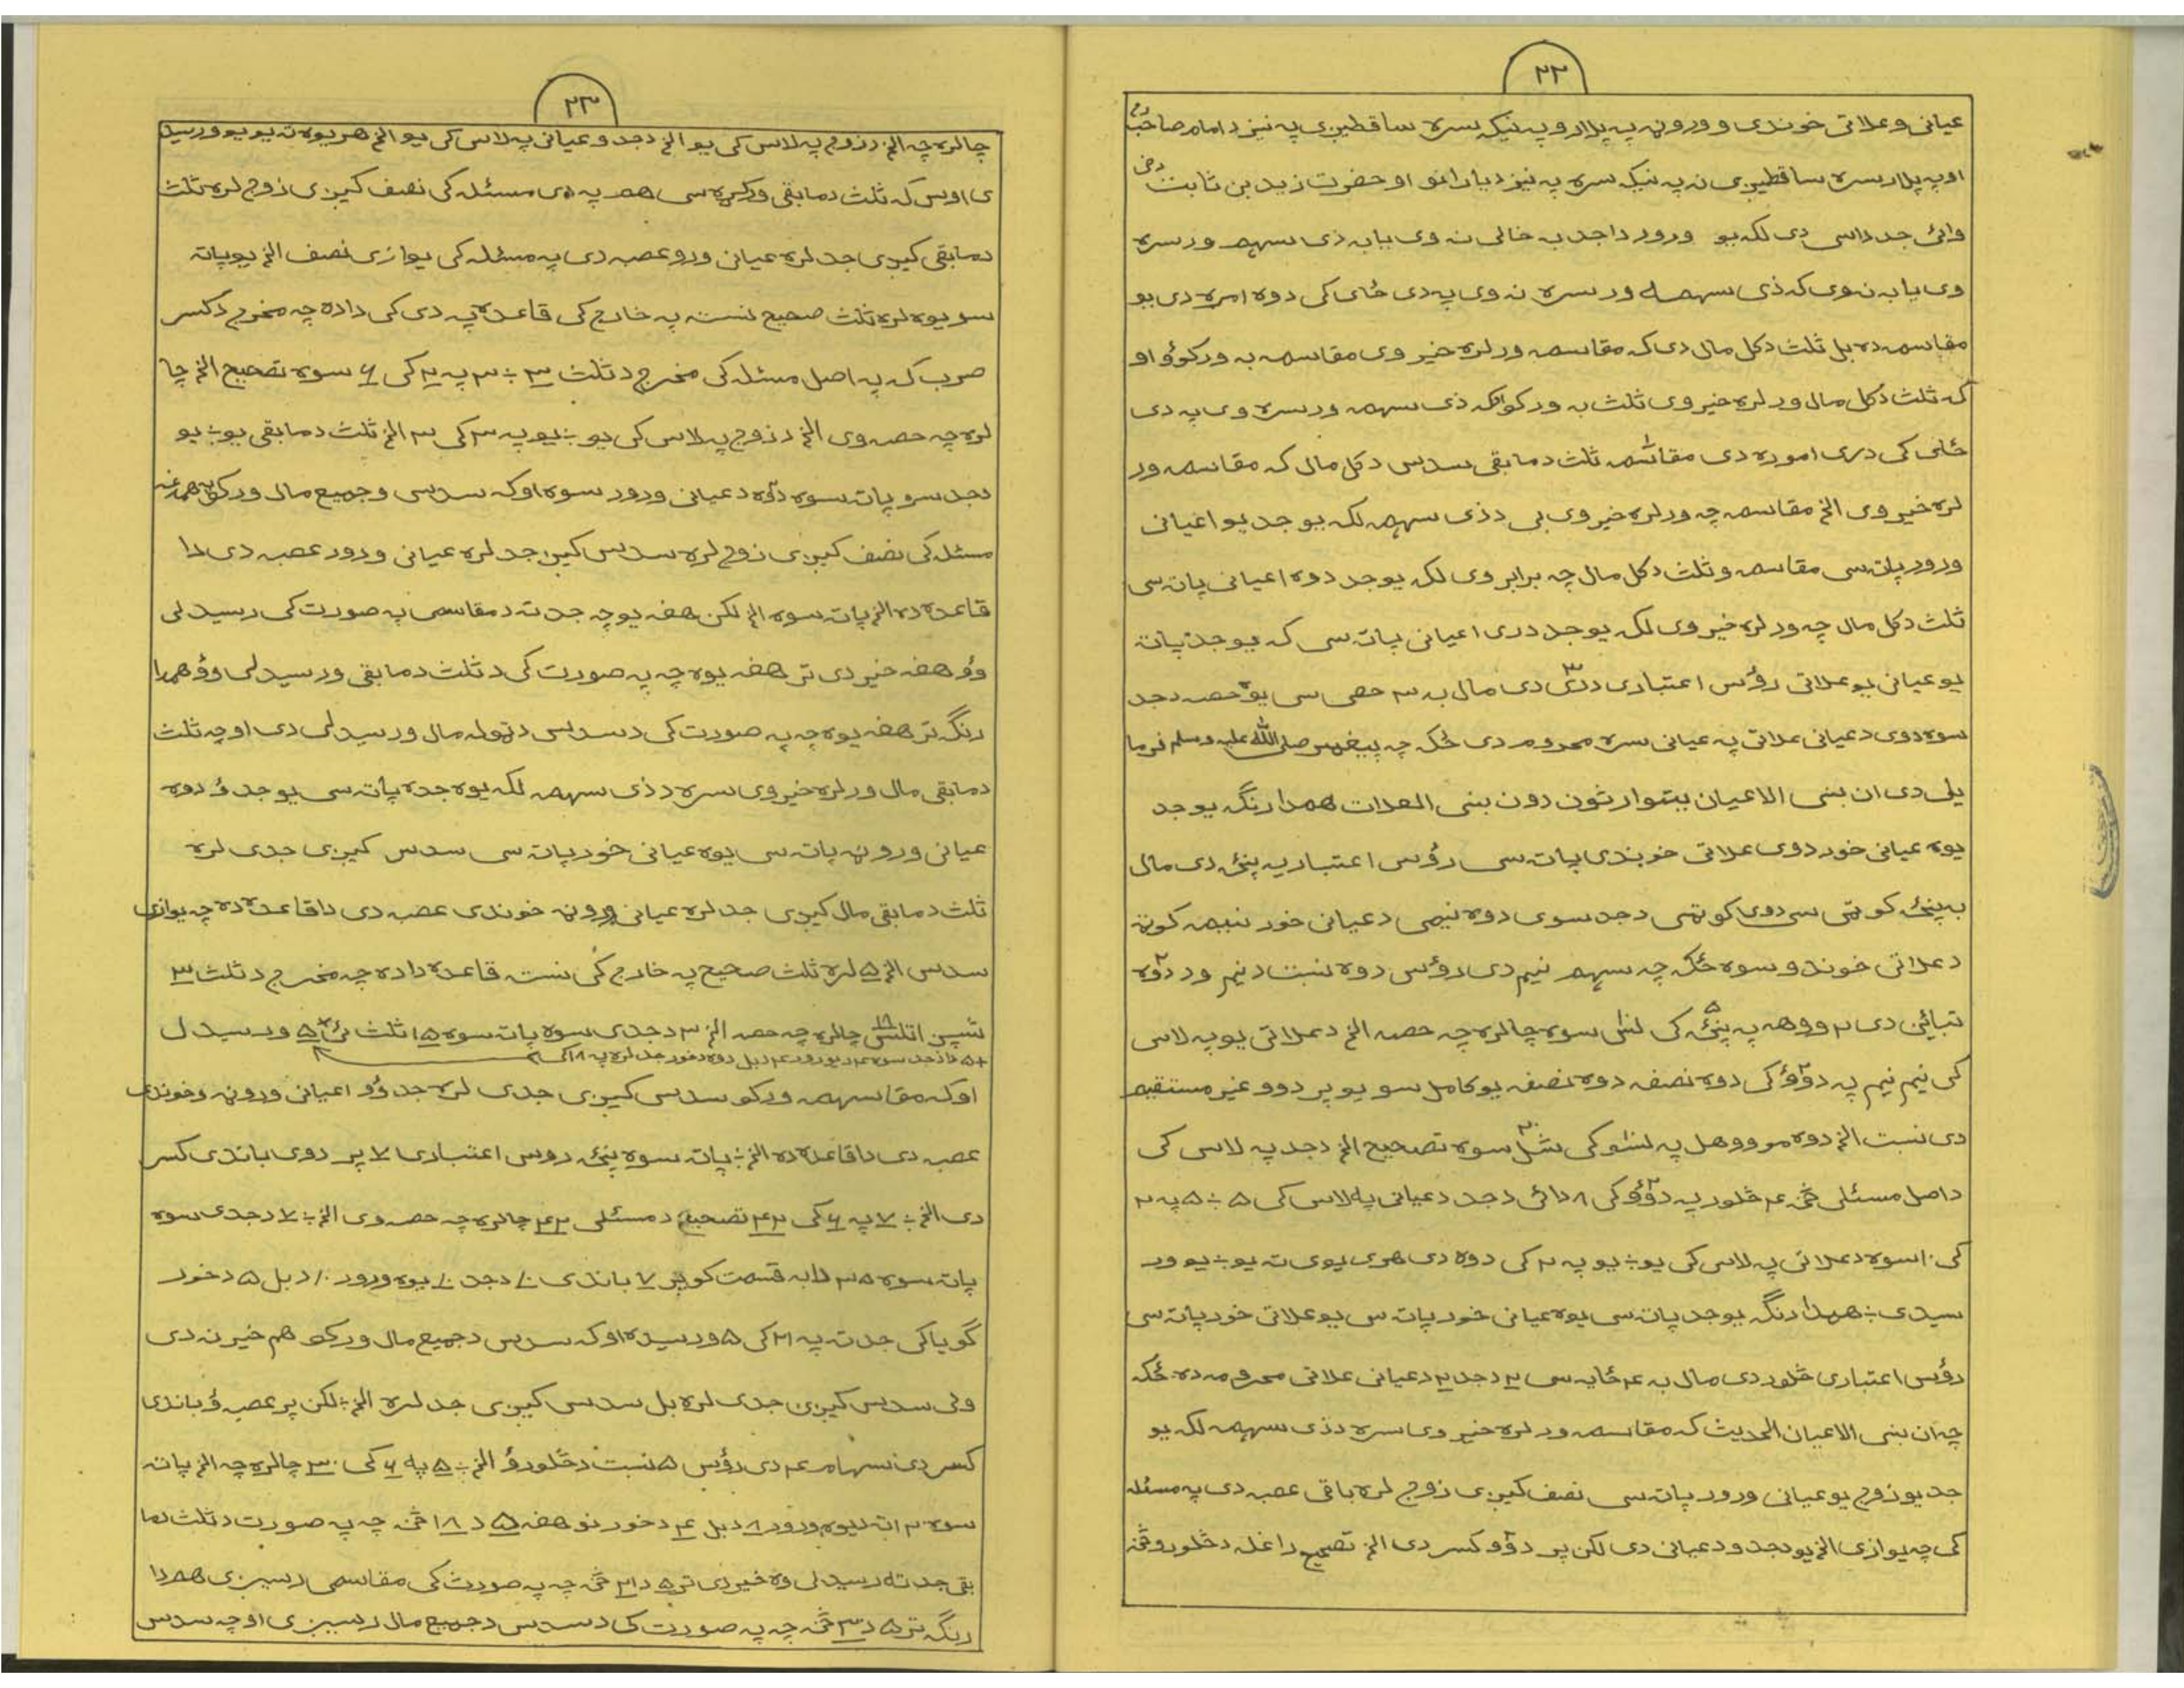 ۲۲
عیانی و علاتی خوندی و ورونه په پلار و په نیکه سره ساقطیږی په نیز د امام صاحبؒ
او په پلار سره ساقطیږی نه په نیکه سره په نیز د یارانو او حضرت زید بن ثابتؓ
وائی جد داسی دی لکه یو ورور دا جد به خالی نه وی یا به ذی سهم ور سره
وی یا به نه وی که ذی سهم ور سره نه وی په دی ځای کی دوه امره دی یو
مقاسمه ده بل ثلث د کل مال دی که مقاسمه ور لره خیر وی مقاسمه به ورکوؤ او
که ثلث د کل مال ور لره خیر وی ثلث به ورکوؤ که ذی سهم ور سره وی په دی
ځای کی دری اموره دی مقاسمه ثلث د مابقی سدس د کل مال که مقاسمه ور
لره خیر وی الخ مقاسمه چه ور لره خیر وی بی د ذی سهم لکه یو جد یو اعیانی
ورور پاته سی مقاسمه و ثلث د کل مال چه برابر وی لکه یو جد دوه اعیانی پاته سی
ثلث د کل مال چه ور لره خیر وی لکه یو جد دری اعیانی پاته سی که یو جد پاته
یو عیانی یو علاتی رؤس اعتباری دری ۳ دی مال به ۳ حصی سی یوه حصه د جد
سوه دوی د عیانی علاتی په عیانی سره محروم دی ځکه چه پیغمبر صلی الله علیه وسلم فرما
یلی دی ان بنی الاعیان یتوارثون دون بنی العلات همدا رنگه یو جد
یوه عیانی خور دوی علاتی خوندی پاته سی رؤس اعتباریه پنځه دی مال
به پنځه کوټی سی دوی کوټی د جد سوی دوه نیمی د عیانی خور نیمه کوټه
د علاتی خوندو سوه ځکه چه سهم نیم دی رؤس دوه نسبت د نیم ور دوه ۲
تبائن دی ۲ ووهه په پنځه ۵ کی لس سوه چالره چه حصه الخ د علاتی یو په لاس
کی نیم نیم په دوو ۲ کی دوه نصفه دوه نصفه یو کامل سو یو پر دوو غیر مستقیم
دی نسبت الخ دوه مو ووهل په لسو کی شل ۲۰ سوه تصحیح الخ د جد په لاس کی
د اصل مسئلی څخه ۴ څلور په دوو ۲ کی ۸ دائی د جد د عیانی په لاس کی ۵ ÷ ۵ په ۲
کی ۱۰ سوه د علاتی په لاس کی یو ÷ یو په ۲ کی دوه دی هری یوی ته یو ÷ یو ور
سیدی ÷ همدا رنگه یو جد پاته سی یوه عیانی خور پاته سی یو علاتی خور پاته سی
رؤس اعتباری څلور دی مال به ۴ ځایه سی ۲ د جد ۲ د عیانی علاتی محرومه ده ځکه
چه ان بنی الاعیان الحدیث که مقاسمه ور لره خیر وی سره د ذی سهم لکه یو
جد یو زوج یو عیانی ورور پاته سی نصف کیږی زوج لره باقی عصبه دی په مسئله
کی چه یوازی الخ یو د جد و د عیانی دی لکن پر دوو ۲ کسر دی الخ تصحیح راغله د څلورو څخه
۲۳
چالره چه الخ د زوج په لاس کی یو الخ د جد و عیانی په لاس کی یو الخ هر یوه ته یو یو ورسید
ی اوس که ثلث د مابقی ورکړه سی هم په دی مسئله کی نصف کیږی زوج لره ثلث
د مابقی کیږی جد لره عیانی ورو عصبه دی په مسئله کی یوازی نصف الخ یو پاته
سو یوه لره ثلث صحیح نسته په خارج کی قاعده په دی کی داده چه مخرج د کسر
ضرب که په اصل مسئله کی مخرج د ثلث ۳ ÷ ۳ په ۲ کی ۶ سوه تصحیح الخ چا
لره چه حصه وی الخ د زوج په لاس کی یو ÷ یو په ۳ کی ۳ الخ ثلث د مابقی یو ÷ یو
د جد سو پاته سوه دوه ۲ د عیانی ورور سوه او که سدس و جمیع مال ورکو په همدغه
مسئله کی نصف کیږی زوج لره سدس کیږی جد لره عیانی ورور عصبه دی دا
قاعده ده الخ پاته سوه الخ لکن هغه یو چه جد ته د مقاسمی په صورت کی رسیدلی
وؤ هغه خیر دی تر هغه یوه چه په صورت کی د ثلث د مابقی ور سیدلی وؤ همدا
رنگه تر هغه یوه چه په صورت کی د سدس د ټوله مال ور سیدلی دی او چه ثلث
د مابقی مال ور لره خیر وی سره د ذی سهم لکه یوه جده پاته سی یو جد ؤ دوه
عیانی ورونه پاته سی یوه عیانی خور پاته سی سدس کیږی جدی لره
ثلث د مابقی مال کیږی جد لره عیانی ورونه خوندی عصبه دی دا قاعده ده چه یوازی
سدس الخ ۵ لره ثلث صحیح په خارج کی نسته قاعده داده چه مخرج د ثلث ۳
شپږ اتلس ۱۸ چالره چه حصه الخ ۳ د جدی سوه پاته سوه ۱۵ ثلث ئی ۵ ور سیدل
او که مقاسمه ورکو سدس کیږی جدی لره جد وؤ اعیانی ورونه و خوندی
عصبه دی دا قاعده ده الخ ÷ پاته سوه پنځه رؤس اعتباری ۷ پر دوی باندی کسر
دی الخ ÷ ۷ په ۶ کی ۴۲ تصحیح د مسئلی ۴۲ چالره چه حصه وی الخ ÷ ۷ د جدی سوه
پاته سوه ۳۵ دا به قسمت کو پر ۷ باندی ۱۰ د جد ۱۰ یوه ورور ۱۰ د بل ۵ د خور
گویا کی جد ته په ۲۱ کی ۵ ورسیده او که سدس د جمیع مال ورکو هم خیر نه دی
ولی سدس کیږی جدی لره بل سدس کیږی جد لره الخ ÷ لکن پر عصبوؤ باندی
کسر دی سهام ۴ دی رؤس ۵ نسبت د څلورؤ الخ ÷ ۵ په ۶ کی ۳۰ چالره چه الخ پاته
سوه ۲۰ اته د یوه ورور ۸ د بل ۴ د خور نو هغه ۵ د ۱۸ څخه چه په صورت د ثلث ما
بقی جد ته رسیدلی وه خیر دی تر ۵ د ۲۱ څخه چه په صورت کی مقاسمی رسیږی همدا
رنگه تر ۵ د ۳۰ څخه چه په صورت کی د سدس د جمیع مال رسیږی او چه سدس